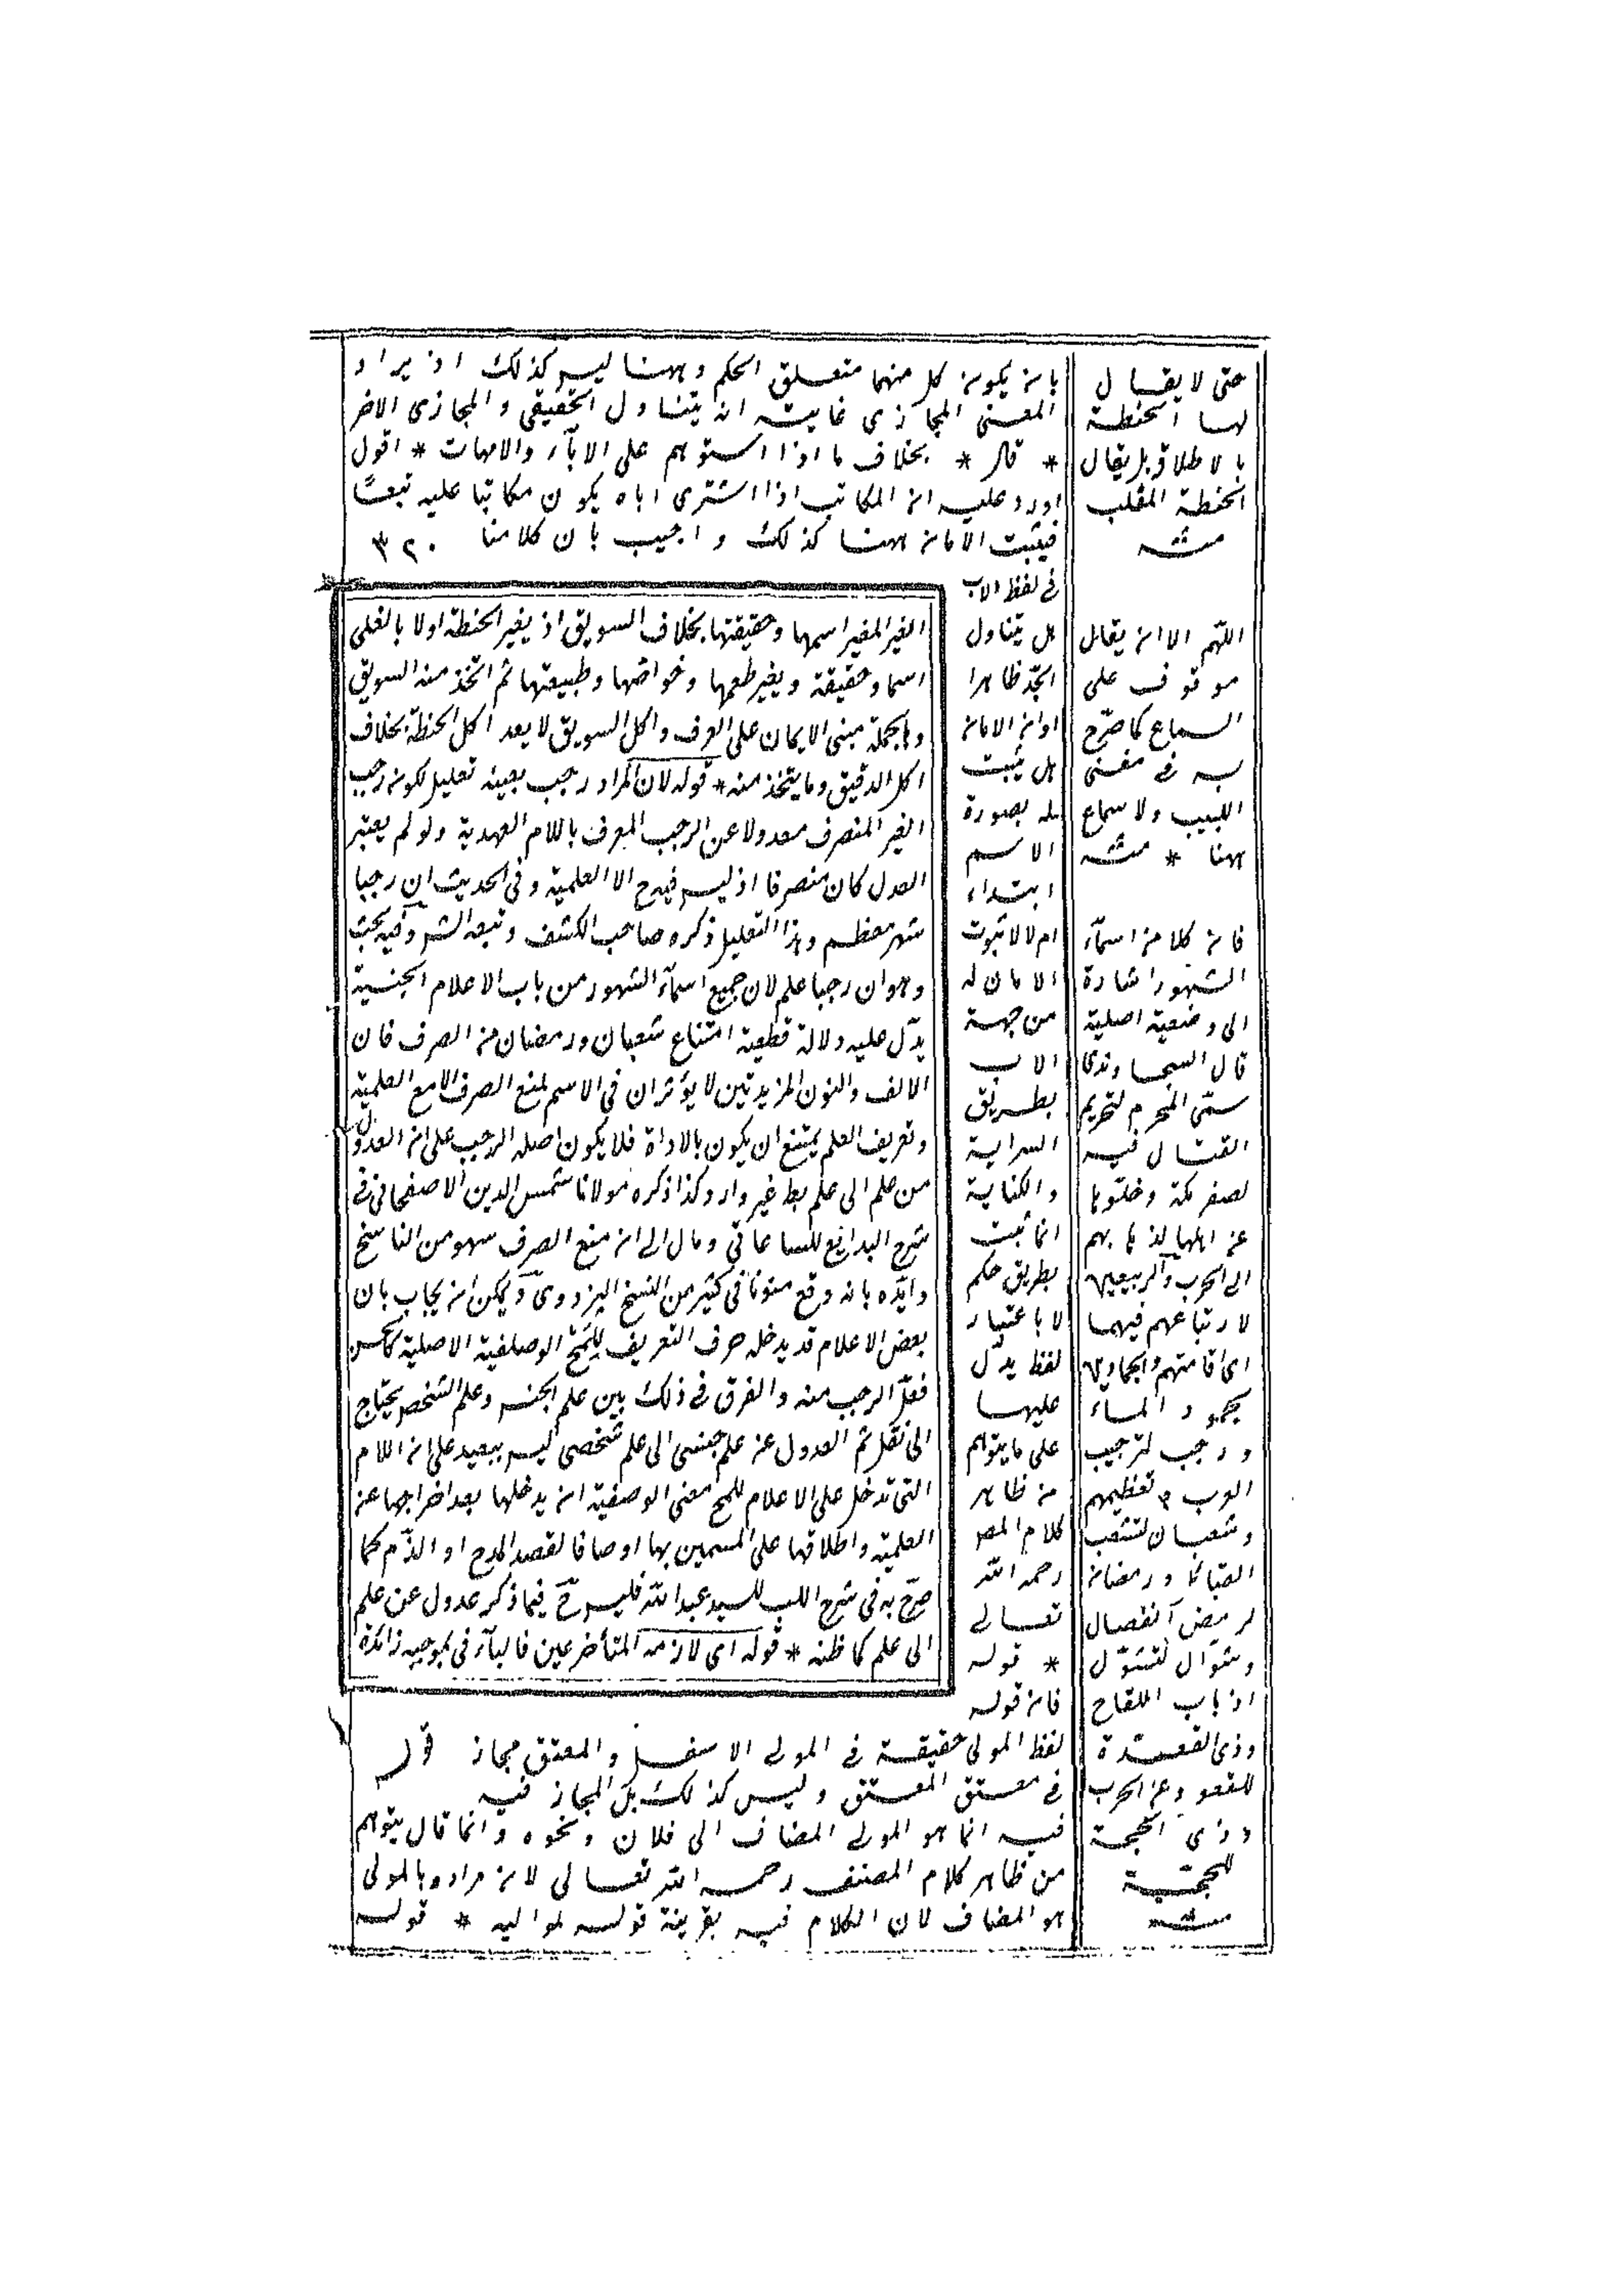 بان يكون كل منهما متعلق الحكم وههنا ليس كذلك اذ يراد
المعنى المجازى غايته انه يتناول الحقيقى والمجازى الاخر
* قال * بخلاف ما اذا استوهم على الآباء والامهات * اقول
اورد عليه ان المكاتب اذا اشترى اباه يكون مكاتبا عليه تبعًا
فيثبت الامان ههنا كذلك واجيب بان كلامنا ٣٢٠
فى لفظ الاب
هل يتناول
الجد ظاهرا
او ان الامان
هل يثبت
له بصورة
الاسم
ابتداء
ام لا لا ثبوت
الامان له
من جهة
الاب
بطريق
السراية
والكناية
انما تثبت
بطريق حكم
لا باعتبار
لفظ يدل
عليها
على ما يتوهم
من ظاهر
كلام المص
رحمه الله
تعالى
* قوله
فان قوله
لفظ المولى حقيقة فى المولى الاسفل والمعتق مجاز
فى معتق المعتق وليس كذلك بل المجاز فيه
فيه انما هو المولى المضاف الى فلان ونحوه وانما قال يتوهم
من ظاهر كلام المصنف رحمه الله تعالى لان مراده بالمولى
هو المضاف لان الكلام فيه بقرينة قوله لمواليه * قوله
الغير المغير اسمها وحقيقتها بخلاف السويق اذ يغير الحنطة اولا بالغلى
اسما وحقيقة ويغير طعمها وخواصها وطبيعتها ثم اتخذ منه السويق
وبالجملة مبنى الايمان على العرف واكل السويق لا يعد اكل الحنطة بخلاف
اكل الدقيق وما يتخذ منه * قوله لان المراد رجب بعينه تعليل لكون رجب
الغير المنصرف معدولا عن الرجب المعرف باللام العهدية ولو لم يعتبر
العدل كان منصرفا اذ ليس فيه ح الا العلمية وفى الحديث ان رجبا
شهر معظم وهذا التعليل ذكره صاحب الكشف وتبعه الشر وفيه بحث
وهو ان رجبا علم لان جميع اسماء الشهور من باب الاعلام الجنسية
يدل عليه دلالة قطعية امتناع شعبان ورمضان من الصرف فان
الالف والنون المزيدتين لا يؤثران فى الاسم لمنع الصرف الا مع العلمية
وتعريف العلم يمتنع ان يكون بالاداة فلا يكون اصله الرجب على ان العدول
من علم الى علم بط غير وارد كذا ذكره مولانا شمس الدين الاصفهانى فى
شرح البدايع للساعاتى ومال الى ان منع الصرف سهو من الناسخ
وايده بانه وقع منونا فى كثير من النسخ البزدوى ويمكن ان يجاب بان
بعض الاعلام قد يدخله حرف التعريف للمح الوصفية الاصلية كالحسن
فعل الرجب منه والفرق فى ذلك بين علم الجنس وعلم الشخص يحتاج
الى نقل ثم العدول عن علم جنسى الى علم شخصى ليس ببعيد على ان اللام
التى تدخل على الاعلام للمح معنى الوصفية ان يدخلها بعد اخراجها عن
العلمية واطلاقها على المسمين بها اوصافا لقصد المدح او الذم كما
صرح به فى شرح اللب للسيد عبد الله فليس ح فيما ذكر عدول عن علم
الى علم كما ظنه * قوله اى لازمه المتأخر عين فالباء فى بموجبه زائدة
قوله
حتى لا يقال
لها الحنطة
بالاطلاق بل يقال
الحنطة المقلب
منه
اللهم الا ان يقال
موقوف على
السماع كما صرح
به فى مغنى
اللبيب ولا سماع
ههنا * منه
فان كلا من اسماء
الشهور اشارة
الى وضعية اصلية
قال السجاوندى
سمى المحرم لتحريم
القتال فيه
لصفر مكة وخلوها
عن اهلها لذهابهم
الى الحرب والربيعين
لارتباعهم فيهما
اى اقامتهم والجمادين
لجمود الماء
ورجب لترجيب
العرب وتعظيمهم
وشعبان لتشعب
القبائل ورمضان
لرمض الفصال
وشوال لتشول
اذناب اللقاح
وذى القعدة
للقعود عن الحرب
وذى الحجة
للحجة
منه